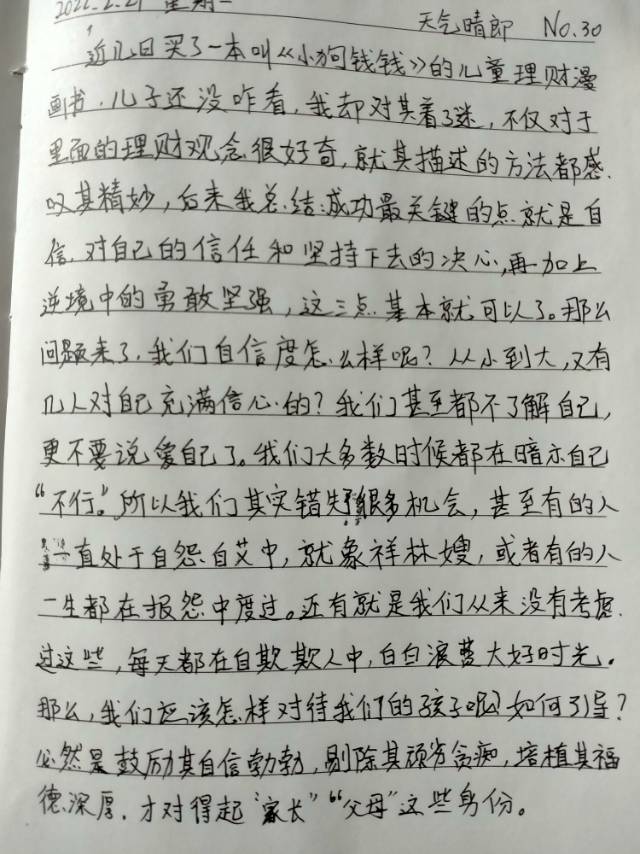 2022.2.21 星期一
天气晴郎 No.30
近几日买了一本叫《小狗钱钱》的儿童理财漫
画书,儿子还没咋看,我却对其着了迷,不仅对于
里面的理财观念很好奇,就其描述的方法都感
叹其精妙,后来我总结成功最关键的点就是自
信,对自己的信任和坚持下去的决心,再加上
逆境中的勇敢坚强,这三点基本就可以了。那么
问题来了,我们自信度怎么样呢?从小到大,又有
几人对自己充满信心的?我们甚至都不了解自己,
更不要说爱自己了。我们大多数时候都在暗示自己
“不行”。所以我们其实错失了很多机会,甚至有的人
一直处于自怨自艾中,就象祥林嫂,或者有的人
一生都在报怨中度过。还有就是我们从来没有考虑
过这些,每天都在自欺欺人中,白白浪费大好时光。
那么,我们应该怎样对待我们的孩子呢?如何引导?
必然是鼓励其自信勃勃,剔除其顽劣贪痴,培植其福
德深厚,才对得起“家长”“父母”这些身份。